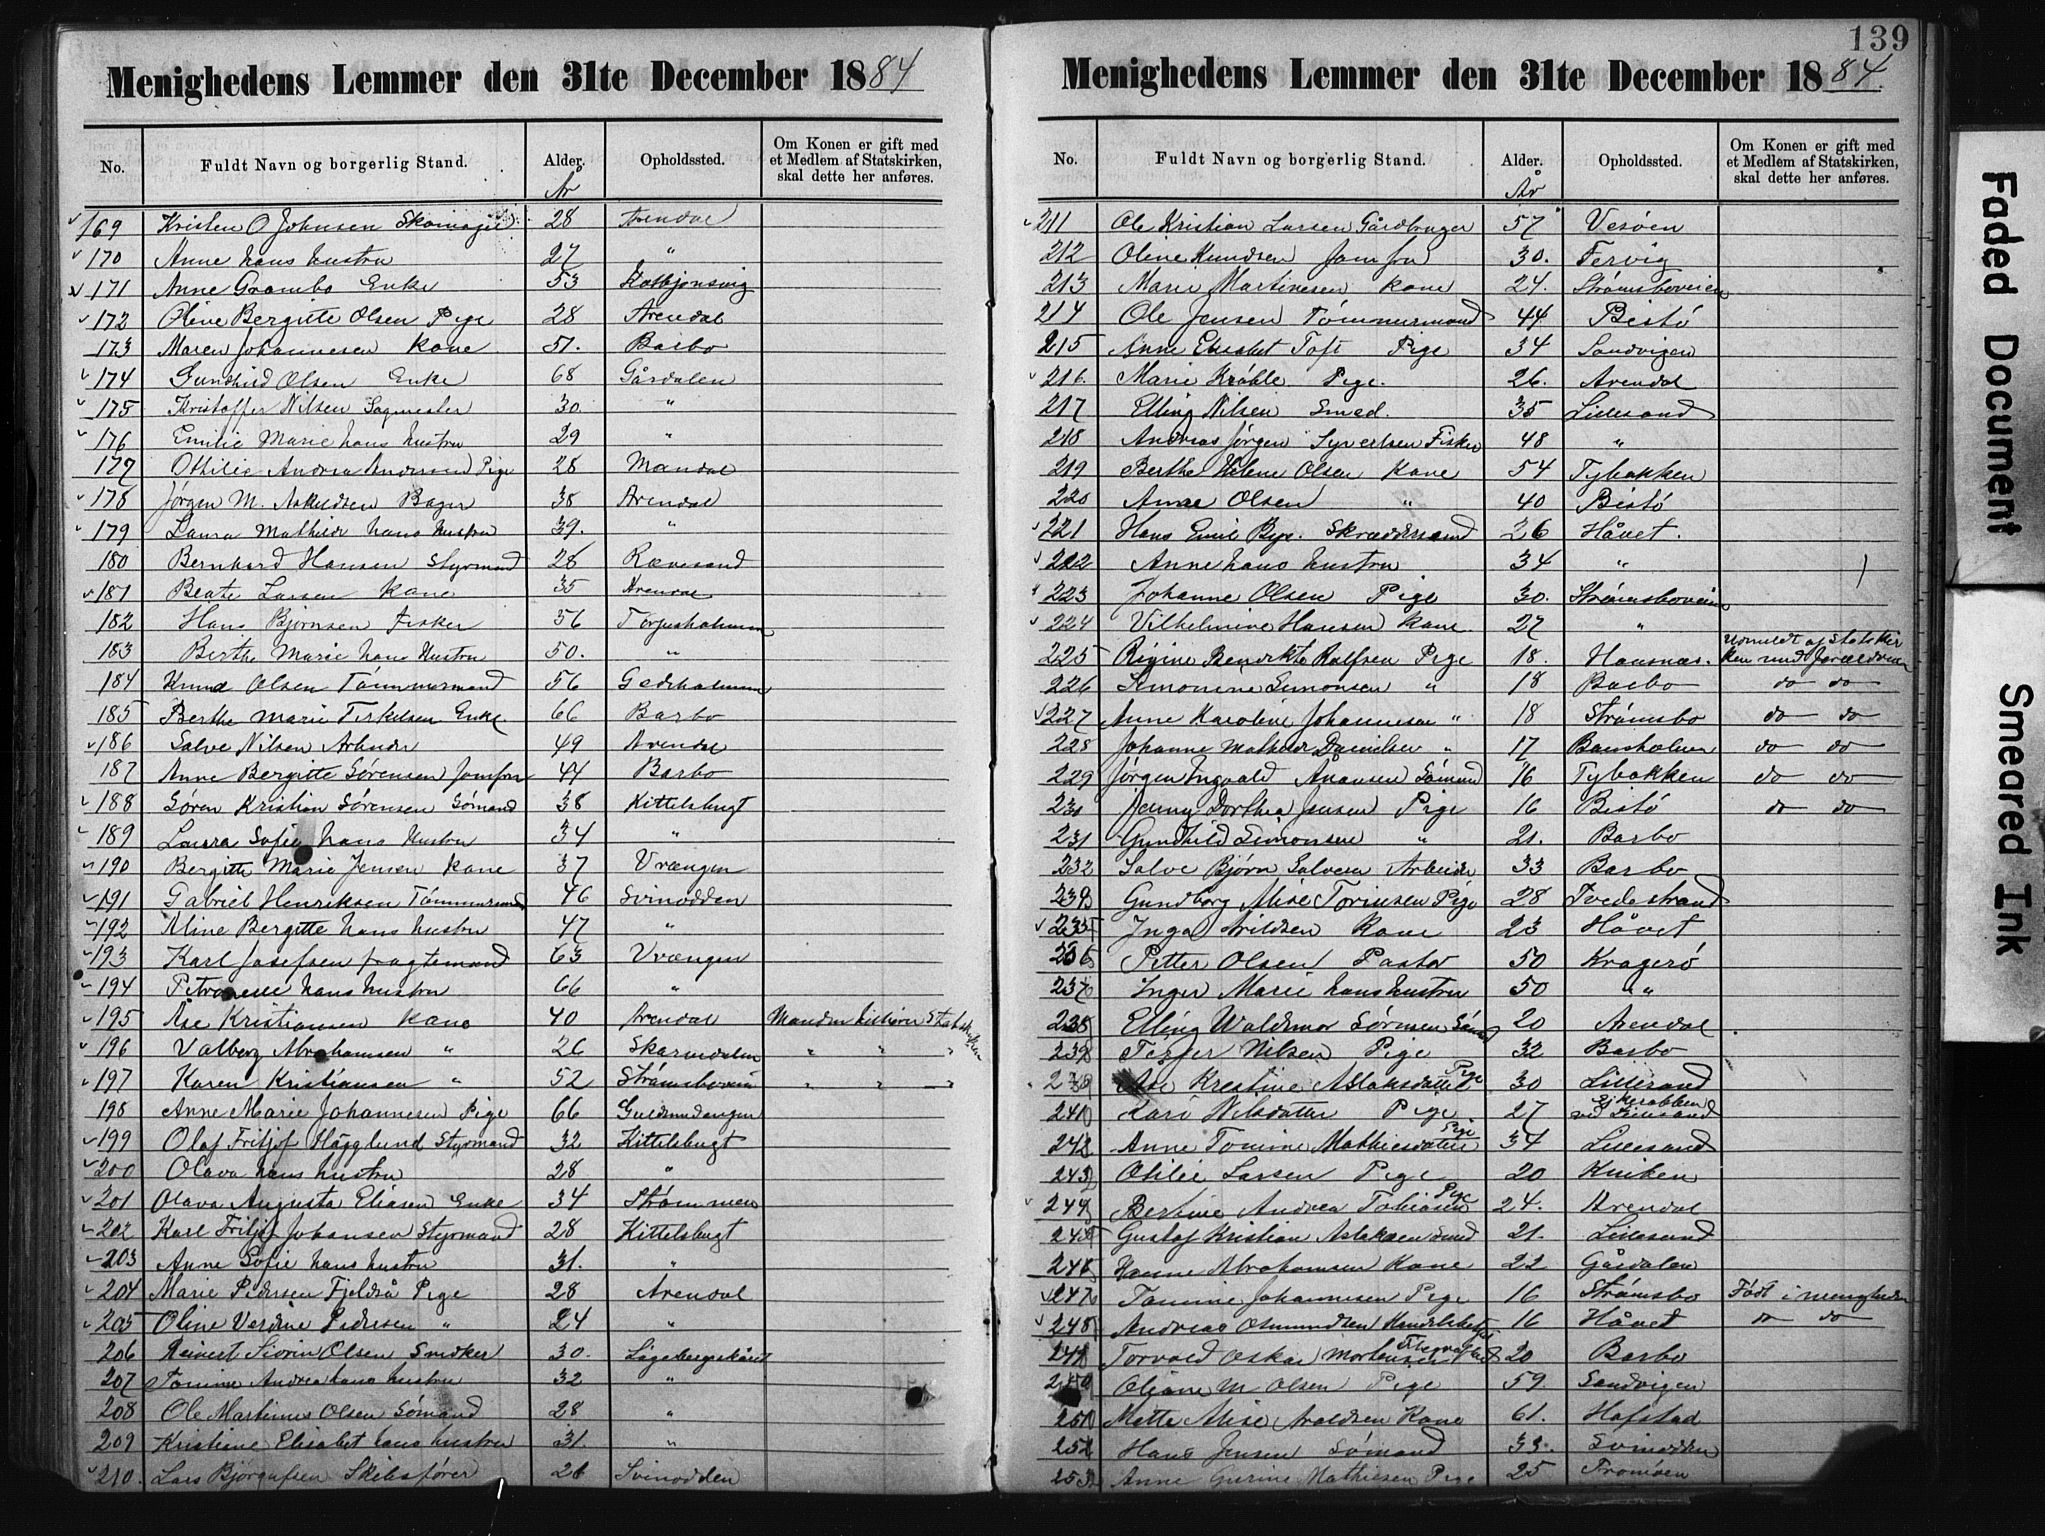 Menighedens Lemmer den 31te December 1884
No. Fuldt Navn og borgerlig Stand. Alder. Opholdssted. Om Konen er gift med et Medlem af Statskirken, skal dette her anføres.
År
169 Kristen O Johnsen 28 Arendal
170 Anne hans hustru 27 "
171 Anne Grambo Enke 53
172 Oline Bergitte Olsen Pige 28 Arendal
173 Maren Johannesen Kone 51. Barbo
174 Gunhild Olsen Enke 68 Gårdalen
175 Kristoffer Nilsen Sagmester 30 "
176 Emilie Marie hans hustru 29 "
177 Othilie Andrea Andersen Pige 28 Mandal
178 Jørgen M. Askildsen Bager 38 Arendal
179 Laura Mathilde hans hustru 39. "
180 Bernhard Hansen Styrmand 28 Rævesand
181 Beate Larsen Kone 35 Arendal
182 Hans Bjørnsen Fisker 56 Torjusholmen
183 Berthe Marie hans hustru 50. "
184 Knud Olsen Tømmermand 56 Gjedeholmen
185 Berthe Marie Terkelsen Enke 66 Barbo
186 Salve Nilsen Arbeider 49 Arendal
187 Anne Bergitte Sørensen Jomfru 44 Barbo
188 Søren Kristian Sørensen Sømand 38 Kittelsbugt
189 Laura Sofie hans hustru 34 "
190 Bergitte Marie Jensen Kone 37 Vrængen
191 Gabriel Henriksen Tømmermand 46 Svinodden
192 Aline Bergitte hans hustru 47 "
193 Karl Josefsen Fragtemand 63 Vrængen
194 Petronelle hans hustru 66 "
195 Åse Kristiansen Kone 40 Arendal Manden tilhører Statskirken
196 Valborg Abrahamsen " 26 Skarsdalen " " "
197 Karen Kristiansen " 52 Strømsboveien " " "
198 Anne Marie Johannesen Pige 66 Guldsmedengen
199 Olaf Fritjof Hägglund Styrmand 32 Kittelsbugt
200 Olava hans hustru 28 "
201 Olava Augusta Eliasen Enke 34 Strømmen
202 Karl Fritjof Johansen Styrmand 28 Kittelsbugt
203 Anne Sofie hans hustru 31. "
204 Marie Pedersen Fjeldså Pige 28 Arendal
205 Oline Verdine Pedersen " 24 "
206 Reivert Siorin Olsen Snedker 30.
207 Tomine Andrea hans hustru 32 "
208 Ole Martinus Olsen Sømand 28 "
209 Kristine Elisabet hans hustru 31. "
210. Lars Bjørgufsen Skibsfører 26 Svinodden
139
Menighedens Lemmer den 31te December 1884.
No. Fuldt Navn og borgerlig Stand. Alder. Opholdssted. Om Konen er gift med et Medlem af Statskirken, skal dette her anføres.
År
211 Ole Kristian Larsen Gårdbruger 57 Vesøen
212 Oline Knudsen Jomfru 30. Fervig
213 Marie Martinesen Kone 24. Strømsboveien
214 Ole Jensen Tømmermand 44 Bestö
215 Anne Elisabet Toft Pige 34 Sandvigen
216. Marie Krøhle Pige. 26. Arendal
217 Elling Nilsen Smed. 35 Lillesand
218 Andreas Jørgen Syvertsen Fisker 48 "
219 Berthe Helene Olsen Kone 54 Tybakken
220 Anne Olsen " 40 Bestö
221 Hans Emil Bye. Skræddersvend 26 Håvet.
222 Anne hans hustru 34 "
223 Johanne Olsen Pige 30. Strømsboveien
224 Vilhelmine Hansen Kone 27 "
225 Rigine Bendikte Ralfsen Pige 18. Hausnæs. Udmeldt af Statskirken med Forældrene
226 Simonine Simonsen " 18 Barbo do do
227 Anne Karoline Johannesen " 18 Strømsbo do do
228 Johanne Mathilde Danielsen " 17 do do
229 Jørgen Ingvald Aanonsen Sømand 16 Tybakken do do
230 Jenny Dorthea Jensen Pige 16 Bestö do do
231 Gundhild Simonsen " 21. Barbo
232 Salve Bjørn Salvesen Arbeider 33 Barbo
Gundborg Alise Torinsen Pige 28 Tvedestrand
235 Inga Arildsen Kone 23 Håvet
236 Petter Olsen Pastor 50 Kragerö
237 Inger Marie hans hustru 50 "
238 Elling Waldemar Sørensen Sömd 20 Arendal
239 Terjer Nilsen Pige 32 Barbo
Åse Krestine Aslaksdatter Pige 30 Lillesand
Kari Nilsdatter Pige 27 ved Lillesand
242 Anne Tomine Mathiesdatter Pige 34 Lillesand
243 Otilie Larsen Pige 20 Kniken
244 Bertine Andrea Tobiasen Pige 24. Arendal
245 Gustaf Kristian Aslaksen Smed 21. Lillesand
Hanne Abrahamsen Kone 22 Gårdalen
247 Tomine Johannesen Pige 16 Strømsbo Født i menigheden
248 Andreas Osmundsen 16 Håvet do do
Torvald Oskar Mortensen 20 Barbo
Oliane M Olsen Pige 59. Sandvigen
251 Mette Alise Araldsen Kone 61. Hafstad
252 Hans Jensen Sømand 33. Svinodden
253 Anne Gurine Mathiesen Pige 25 Tromöen
Faded Document
Smeared Ink